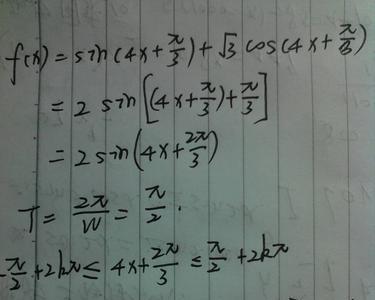 f(x) = sin(4x + π/3) + √3 cos(4x + π/3)
= 2 sin[(4x + π/3) + π/3]
= 2 sin(4x + 2π/3)
T = 2π/W = π/2 .
-π/2 + 2kπ ≤ 4x + 2π/3 ≤ π/2 + 2kπ